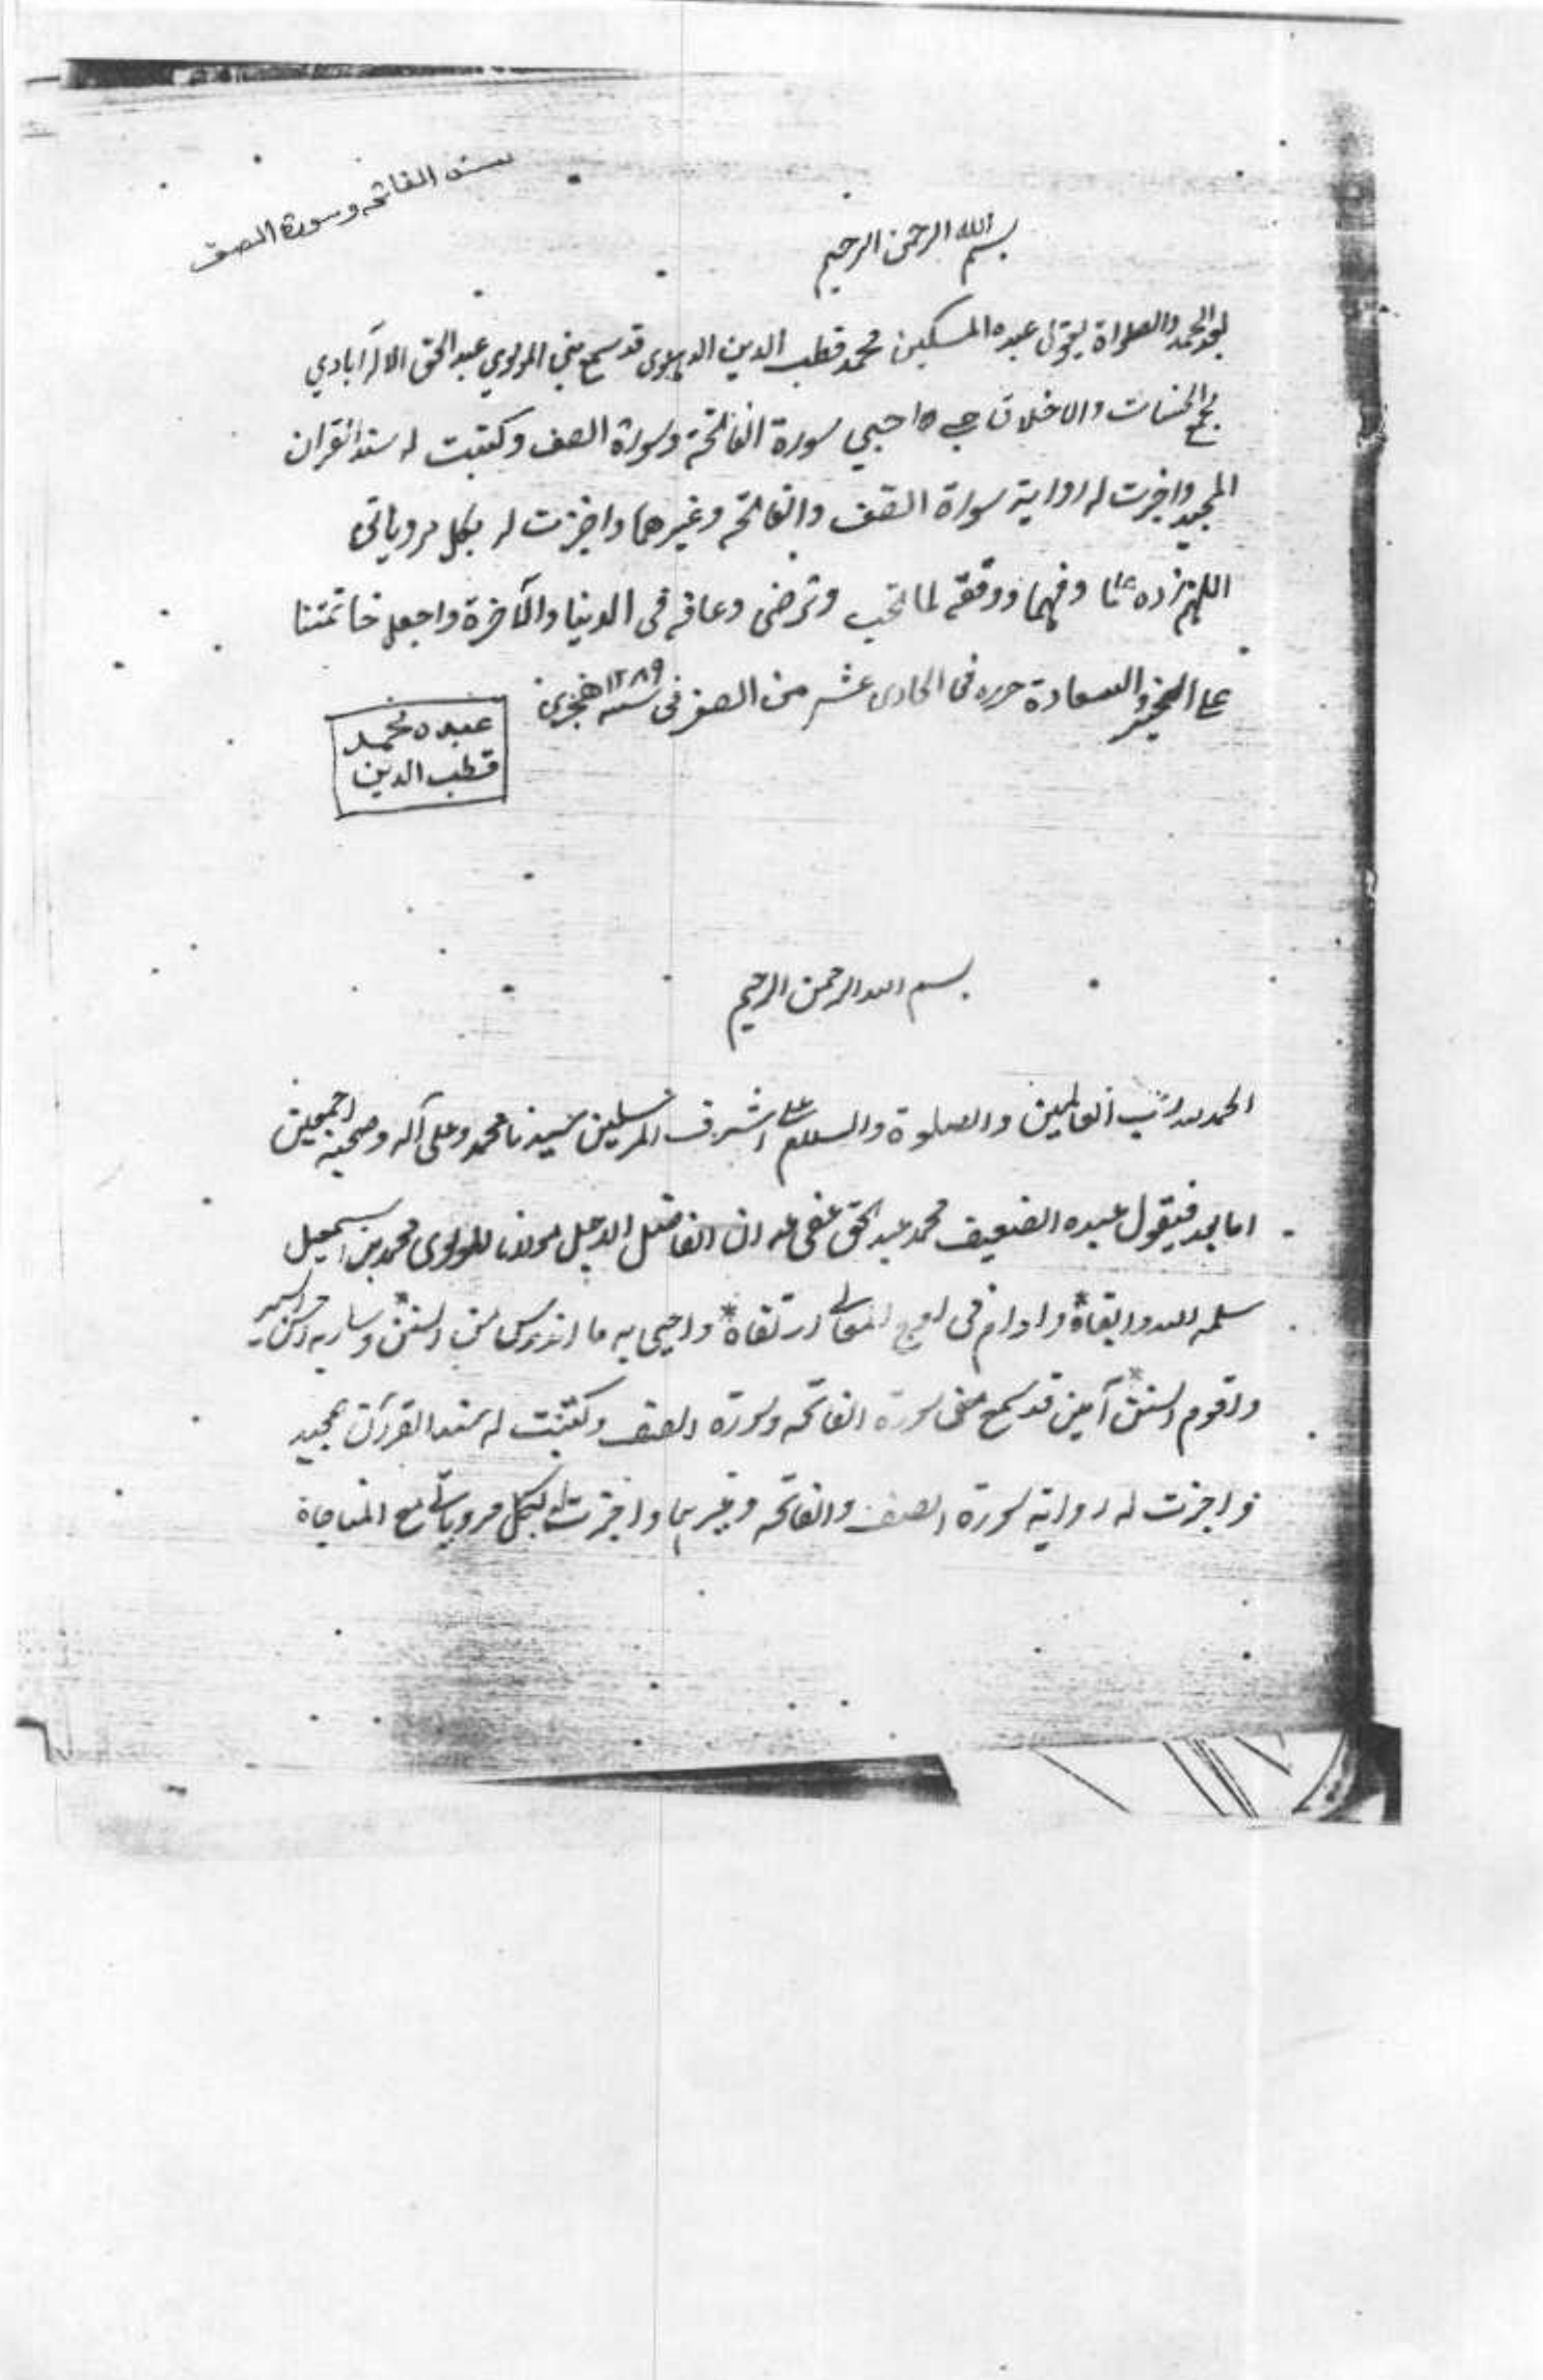 سند الفاتحه وسورة الصف
بسم الله الرحمن الرحيم
بعد الحمد والصلواة يقول عبده المسكين محمد قطب الدين الدہلوی قد سمع مني المولوي عبد الحق الاله آبادي
الحسنات والاخلاق سورة الفاتحة وسورة الصف وكتبت له سند القران
المجيد واجزت له رواية سورة الصف والفاتحه وغيرهما واجزت له بكل مروياتى
اللهم زده علما وفهما ووفقه لما تحب وترضى وعافه فى الدنيا والآخرة واجعل خاتمتنا
على الخير والسعادة حرره فى الحادى عشر من الصفر فى سنه ١٢٨٩ هجرى
عبده محمد
قطب الدين
بسم الله الرحمن الرحيم
الحمد لله رب العالمين والصلوة والسلام على اشرف المرسلين سيدنا محمد وعلى آله وصحبه اجمعين
اما بعد فيقول عبده الضعيف محمد عبد الحق عفى عنه ان الفاضل الاجل مولانا المولوى محمد بن اسمعيل
سلمه الله وابقاه * وادام فى اوج المعالى ارتقاه * واحيى به ما اندرس من السنن * وسار به احسن السير
واقوم السنن * آمين قد سمع منى سورة الفاتحه وسورة الصف وكتبت له سند القرآن المجيد
واجزت له رواية سورة الصف والفاتحه وغيرہما واجزت له بكل مروياتى مع المناجاة